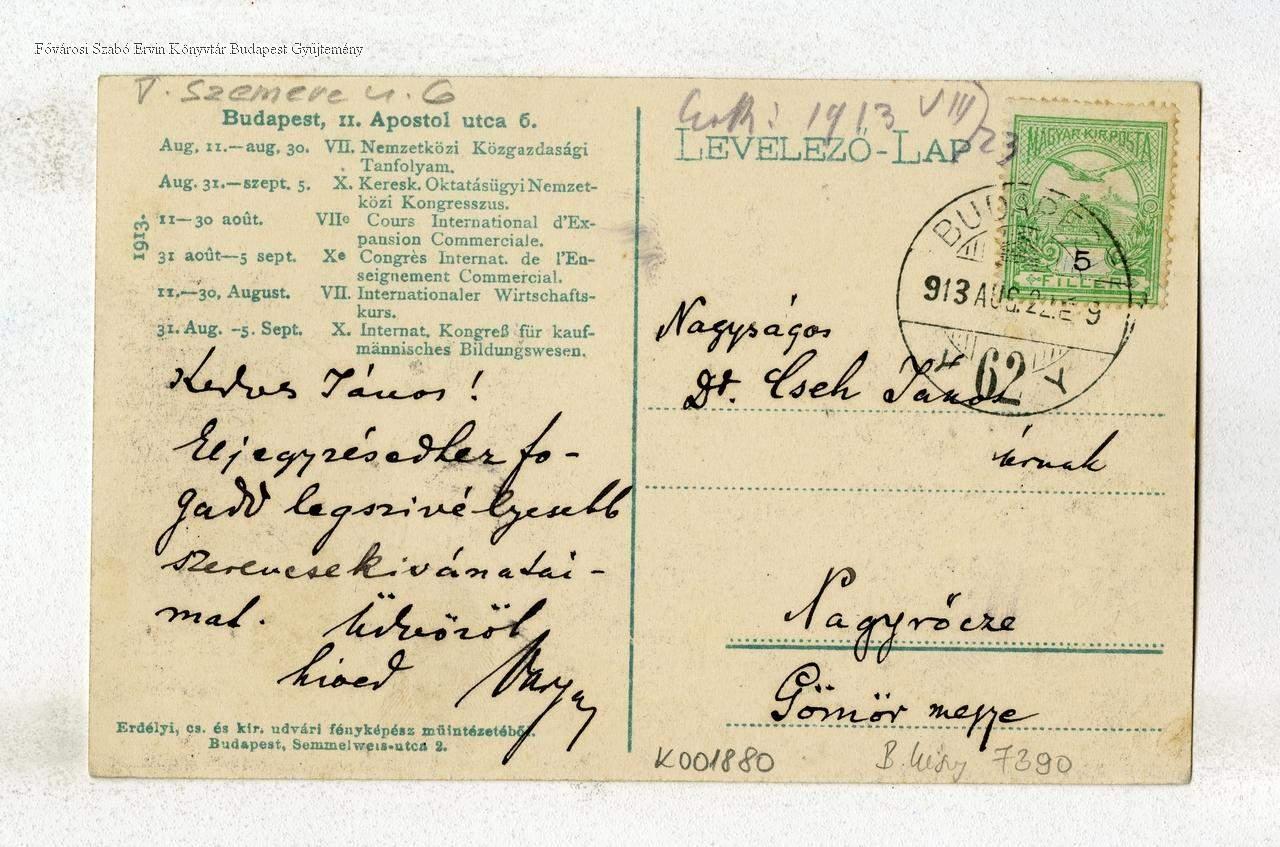 Fővárosi Szabó Ervin Könyvtár Budapest Gyüjtemény
V. Szemere u. 6
Budapest, II. Apostol utca 6.
1913.
Aug. 11.—aug. 30. VII. Nemzetközi Közgazdasági
Tanfolyam.
Aug. 31.—szept. 5. X. Keresk. Oktatásügyi Nemzet-
közi Kongresszus.
11—30 août. VIIe Cours International d'Ex-
pansion Commerciale.
31 août—5 sept. Xe Congrès Internat. de l'En-
seignement Commercial.
11.—30. August. VII. Internationaler Wirtschafts-
kurs.
31. Aug. -5. Sept. X. Internat. Kongreß für kauf-
männisches Bildungswesen.
Kedves János!
Eljegyzésedhez fo-
gadd legszivélyesebb
szerencsekivánatai-
mat. Üdvözöl
hived Varga
Erdélyi, cs. és kir. udvári fényképész müintézetéből.
Budapest, Semmelweis-utca 2.
1913 VIII/23
LEVELEZŐ-LAP
MAGYAR·KIR·POSTA
5
FILLÉR
BUDAPEST
913 AUG. 22. E 9
62
Nagyságos
Dr. Cseh János
úrnak
Nagyrőcze
Gömör megye
K001880
7390